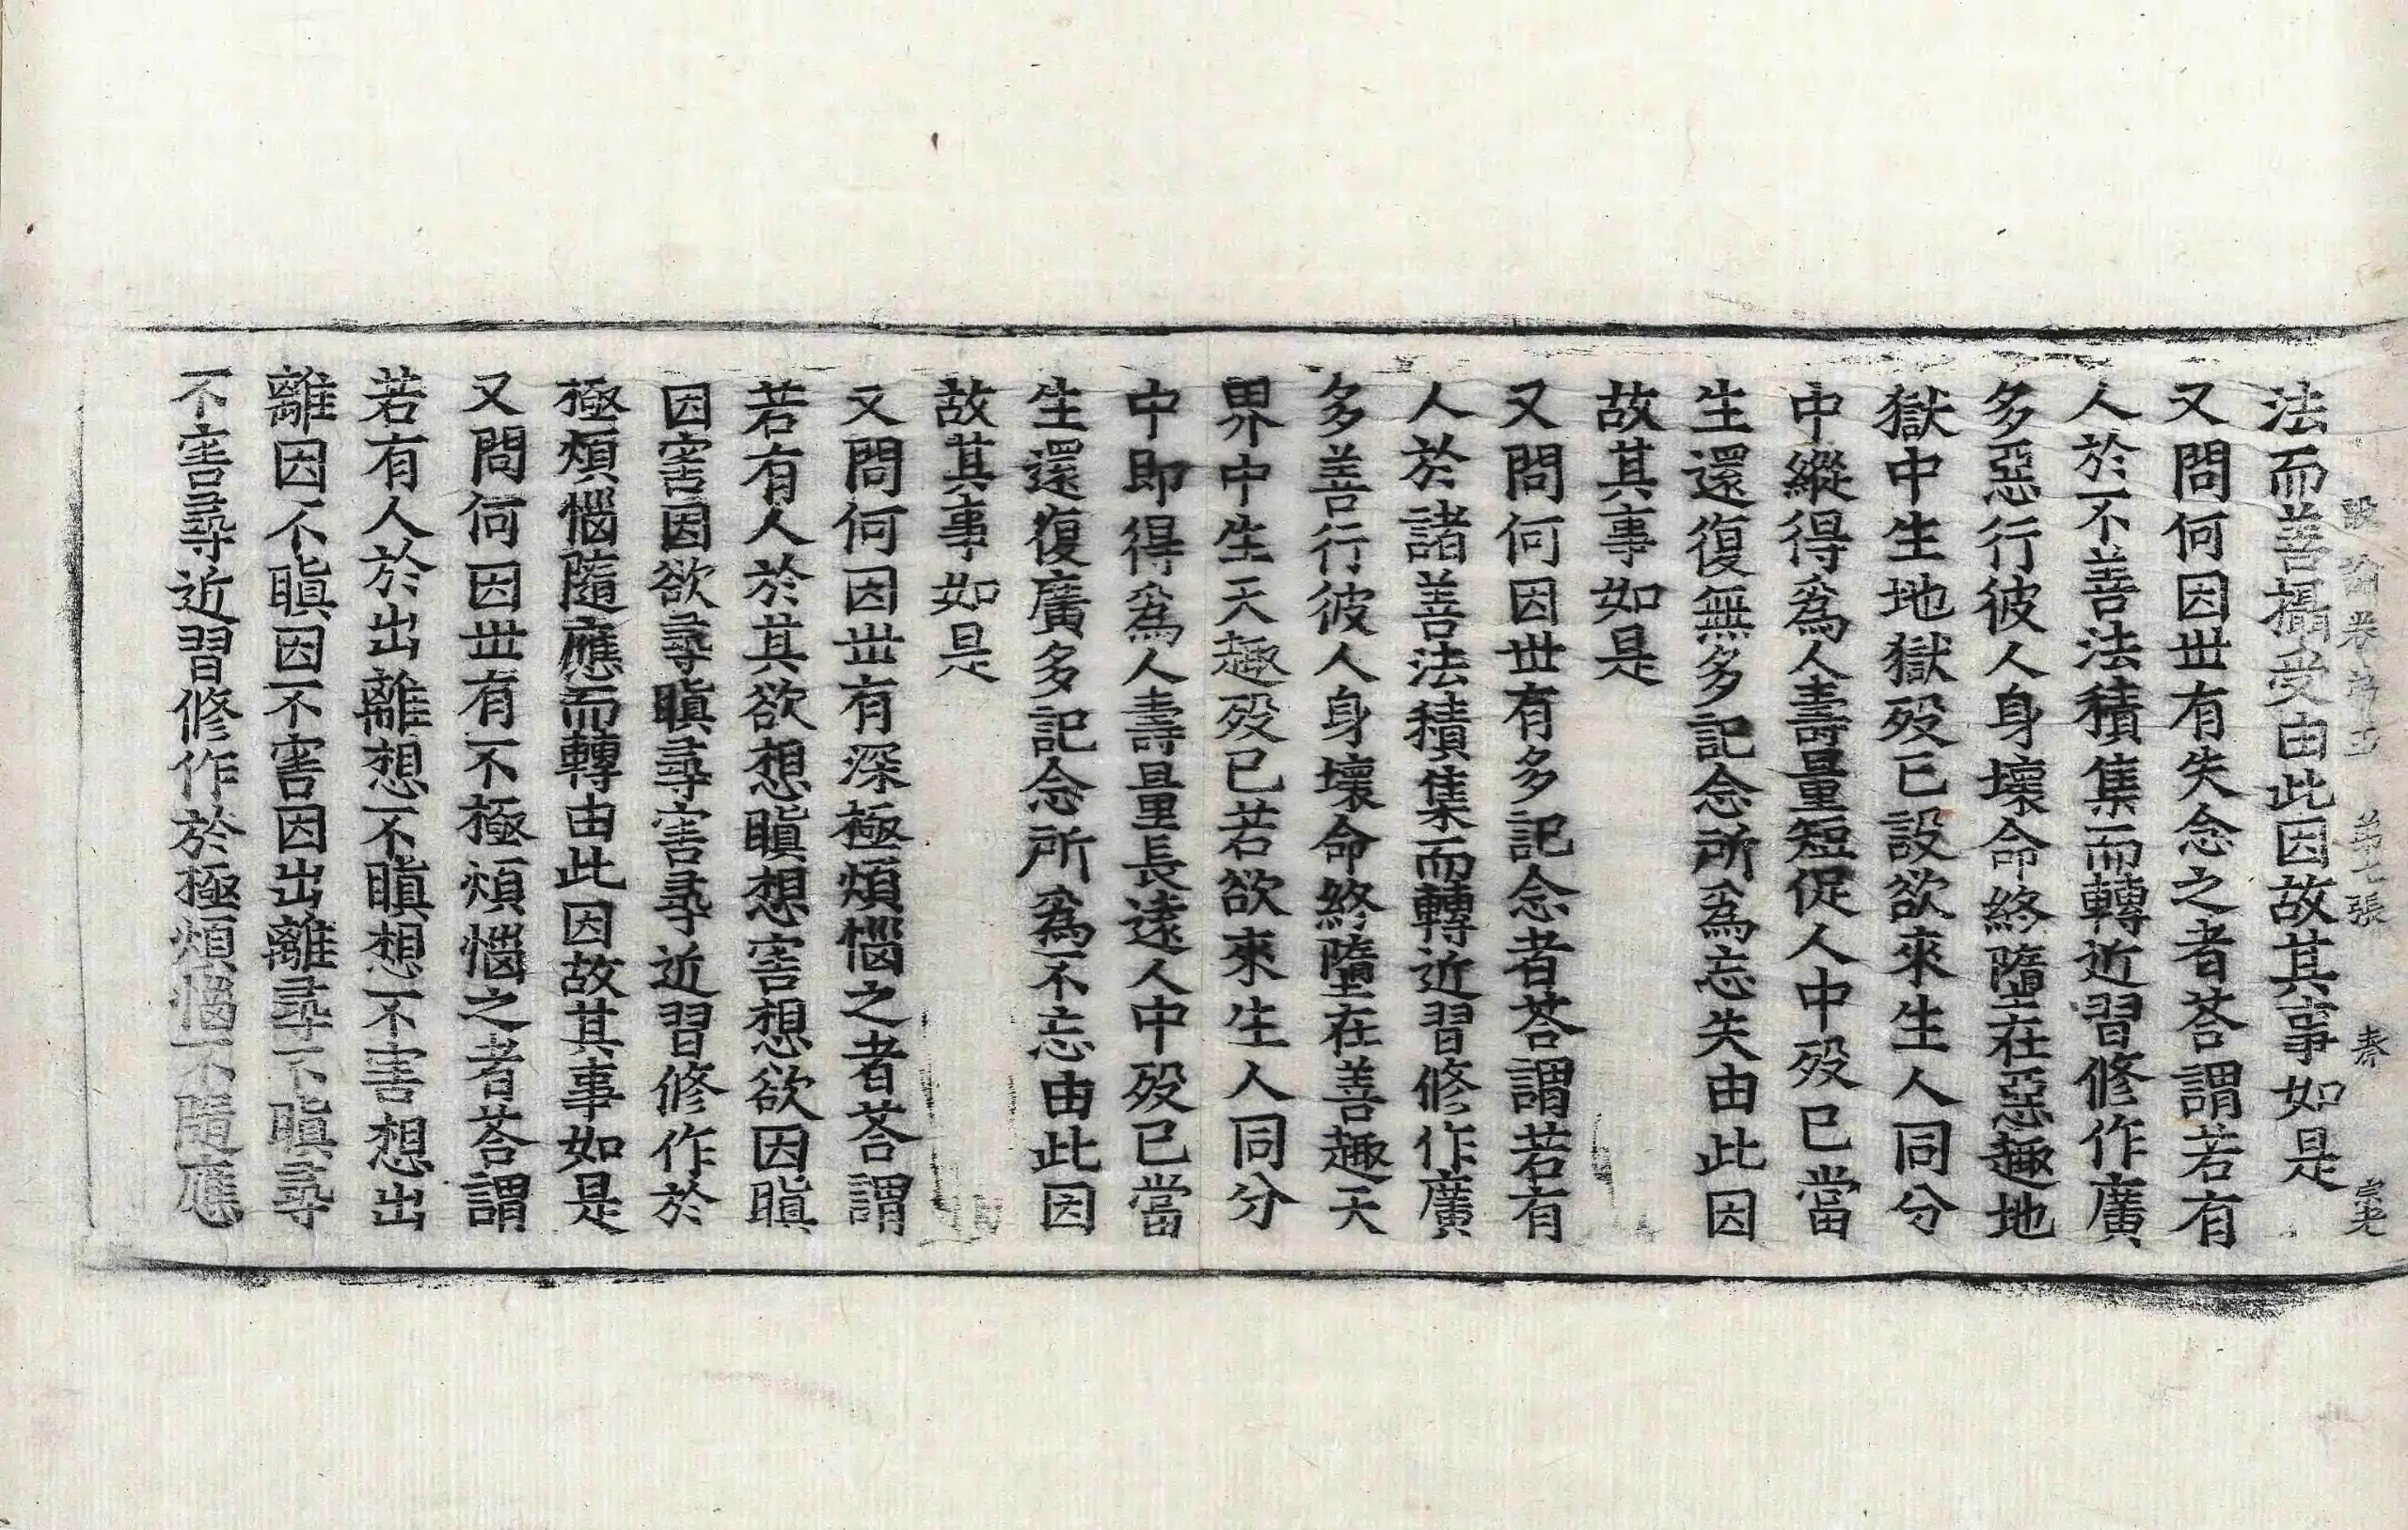 論卷 第七張 奉
法而善攝受由此因故其事如是
又問何因丗有失念之者荅謂若有
人於不善法積集而轉近習修作廣
多惡行彼人身壞命終墮在惡趣地
獄中生地獄歿已設欲來生人同分
中縱得爲人壽量短促人中歿已當
生還復無多記念所爲忘失由此因
故其事如是
又問何因丗有多記念者荅謂若有
人於諸善法積集而轉近習修作廣
多善行彼人身壞命終墮在善趣天
界中生天趣歿已若欲來生人同分
中即得爲人壽量長遠人中歿已當
生還復廣多記念所爲不忘由此因
故其事如是
又問何因丗有深極煩惱之者荅謂
若有人於其欲想瞋想害想欲因瞋
因害因欲尋瞋尋害尋近習修作於
極煩惱隨應而轉由此因故其事如是
又問何因丗有不極煩惱之者荅謂
若有人於出離想不瞋想不害想出
離因不瞋因不害因出離尋不瞋尋
不害尋近習修作於極煩惱不隨應